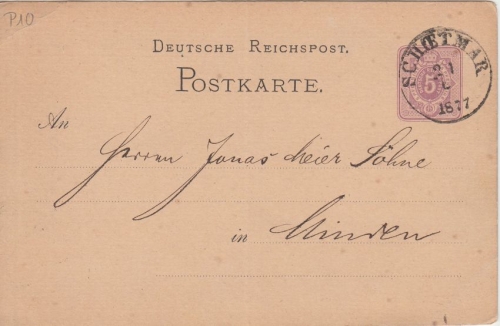 P10
DEUTSCHE REICHSPOST.
POSTKARTE.
SCHŒTMAR
1877
5
An
Herren Jonas Meier Söhne
in Minden